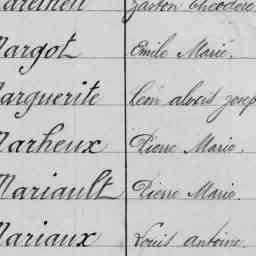 Gaston Theodore
Margot Emile Marie.
Marguerite Léon aloïs josep
Marheux Pierre Marie.
Mariault Pierre Marie.
Mariaux Louis antoine.